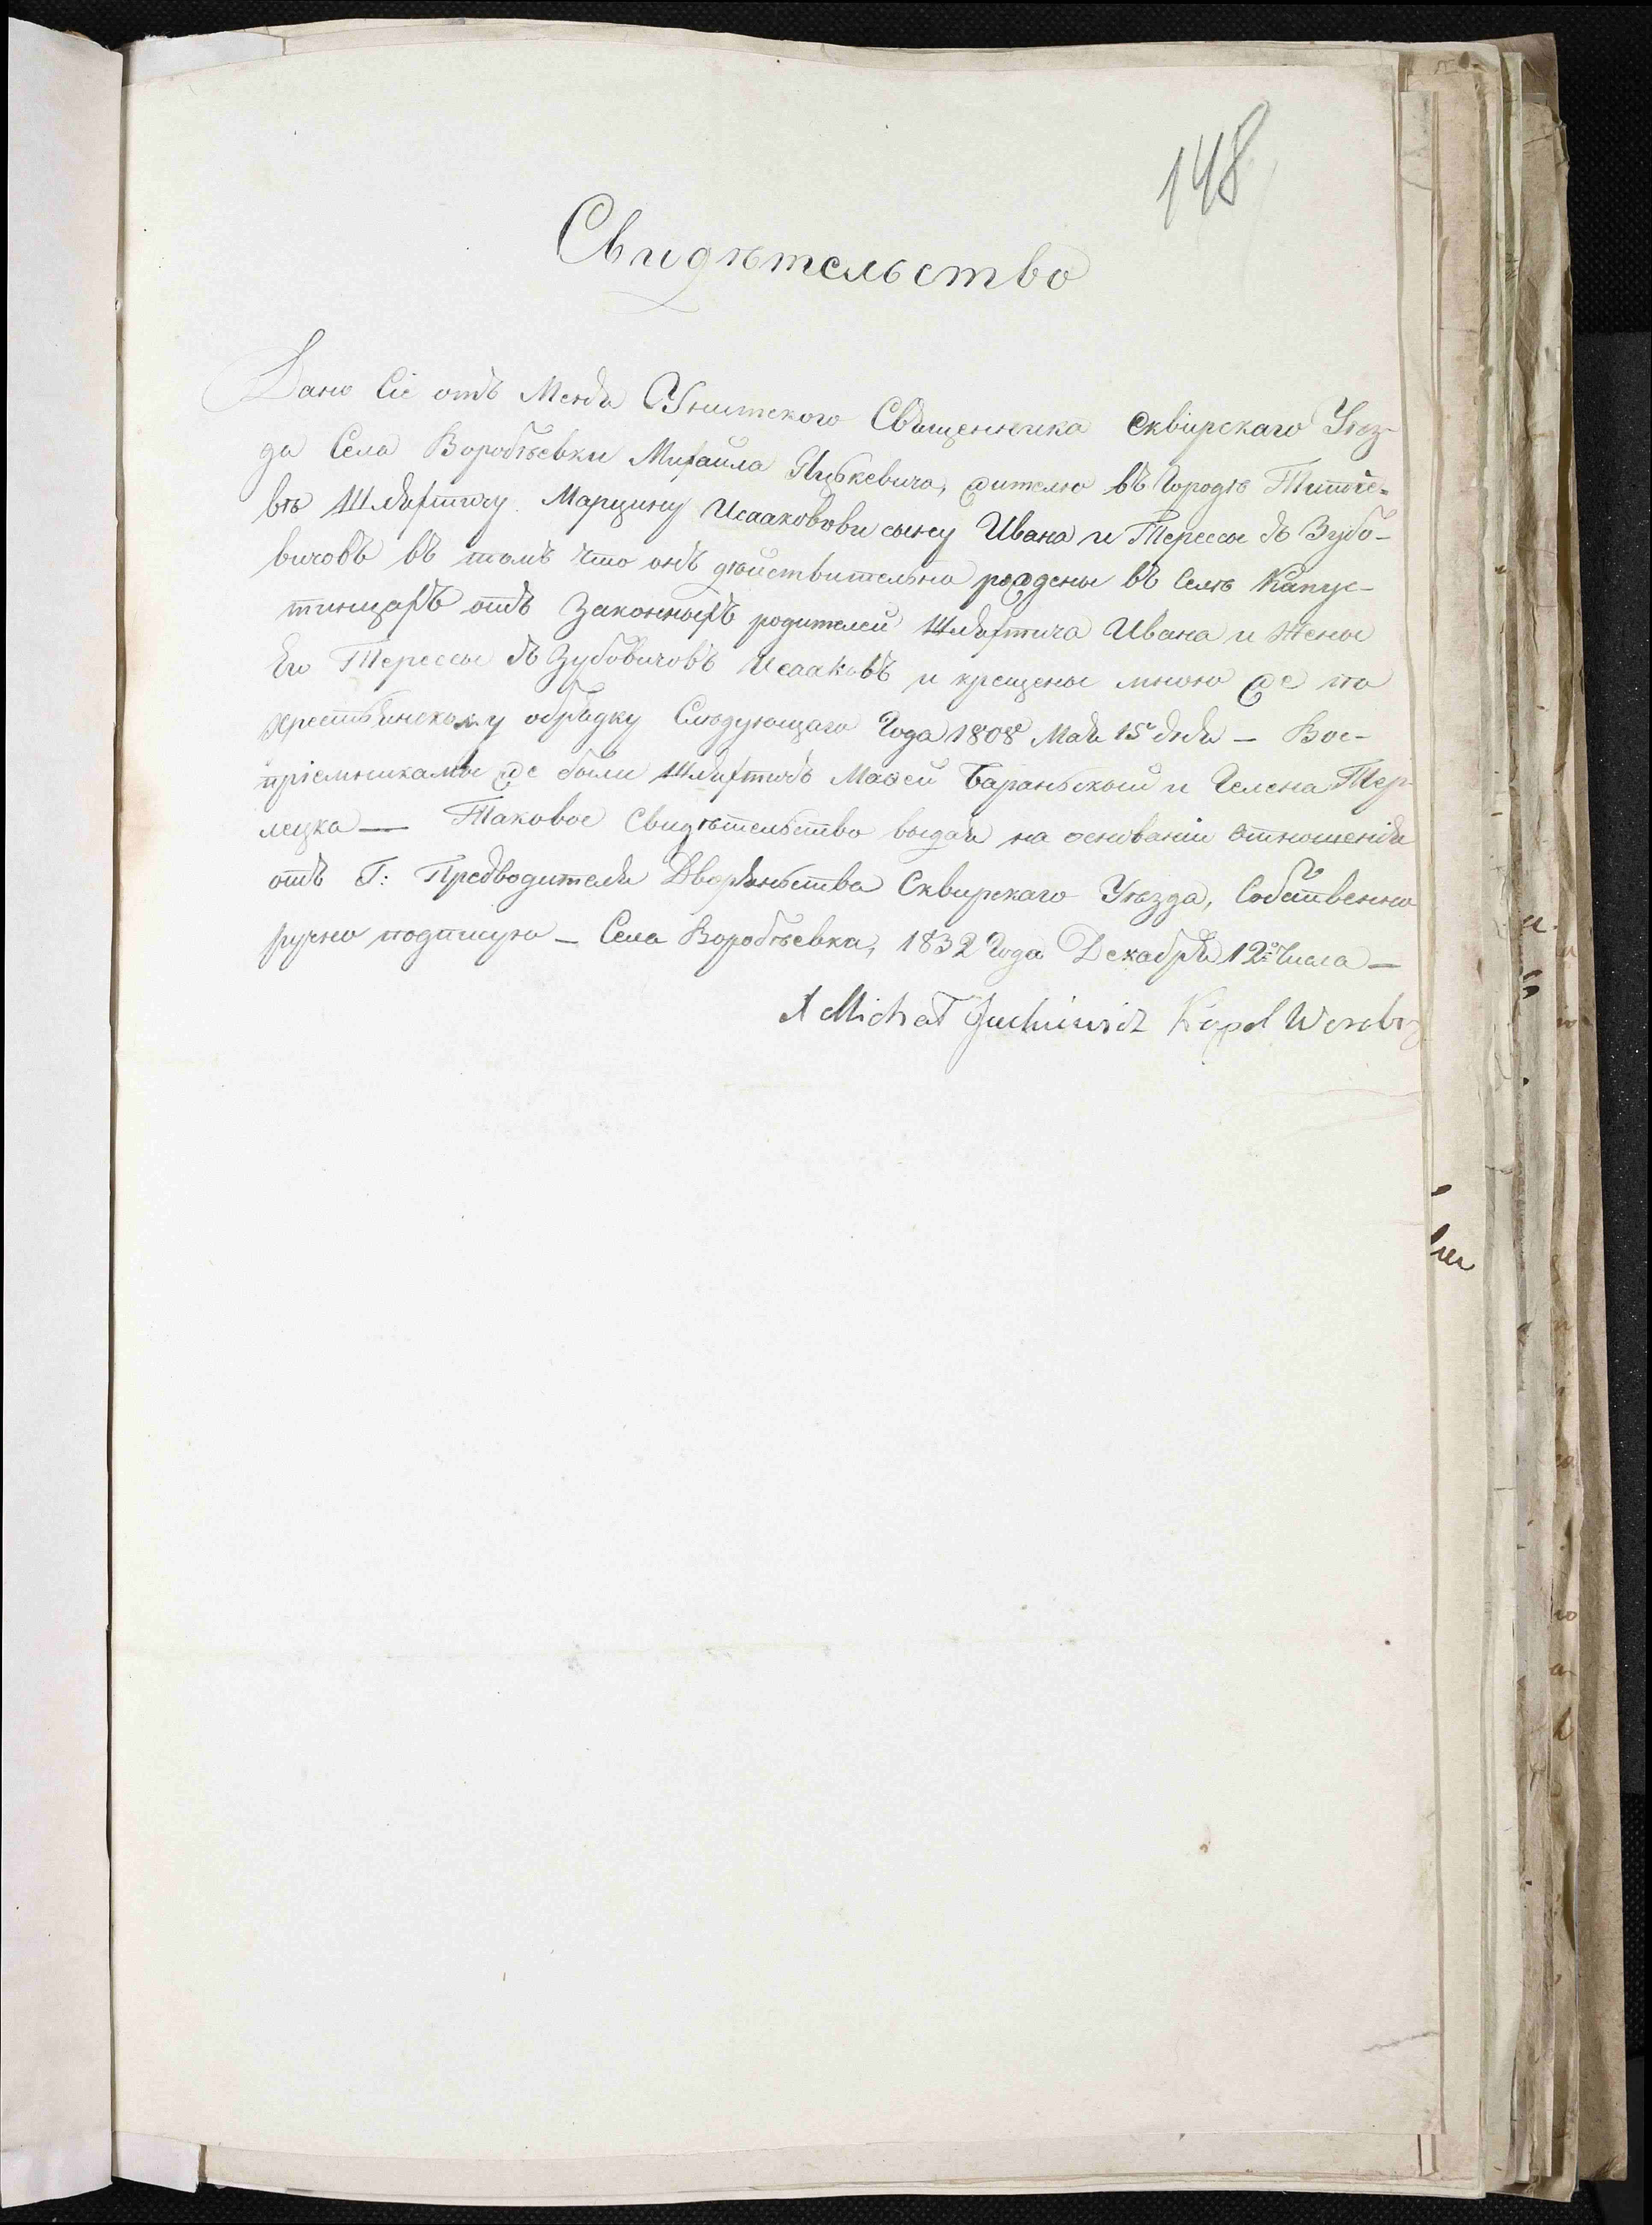 148
Свидѣтельство
Дано Сіе отъ Меня Унитского Священника Сквирскаго Уѣз-
да Села Воробѣевки Михаила Яцькевича, жителю въ Городѣ Титіе-
вѣ Шляхтичу Марцину Исааковови сыну Ивана и Терессы зъ Зубо-
вичовъ въ томъ что онъ дѣйствительно рождены въ Селѣ Капус-
тинцахъ отъ Законныхъ родителей Шляхтича Ивана и Жены
Его Терессы зъ Зубовичовъ Исааковъ и крещены мною же по
хрестьянскому обрядку Слѣдующаго Года 1808 Мая 15 дня — Вос-
пріемникамы же были Шляхтичь Мафей Бараньскый и Гелена Тер-
лецка — Таковое Свидѣтельство выдая на основаніи Отношенія
отъ Г: Предводителя Дворяньства Сквирскаго Уѣзда, Собственно
ручно подпишую — Села Воробѣевка, 1832 Года Декабря 12º Числа —
X Michał